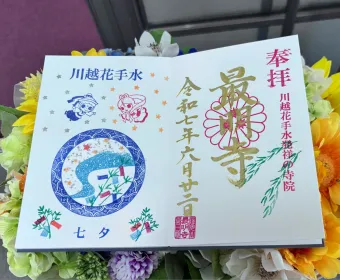 奉拝
川越花手水発祥の寺院
最明寺
令和七年六月廿二日
川越花手水
七夕